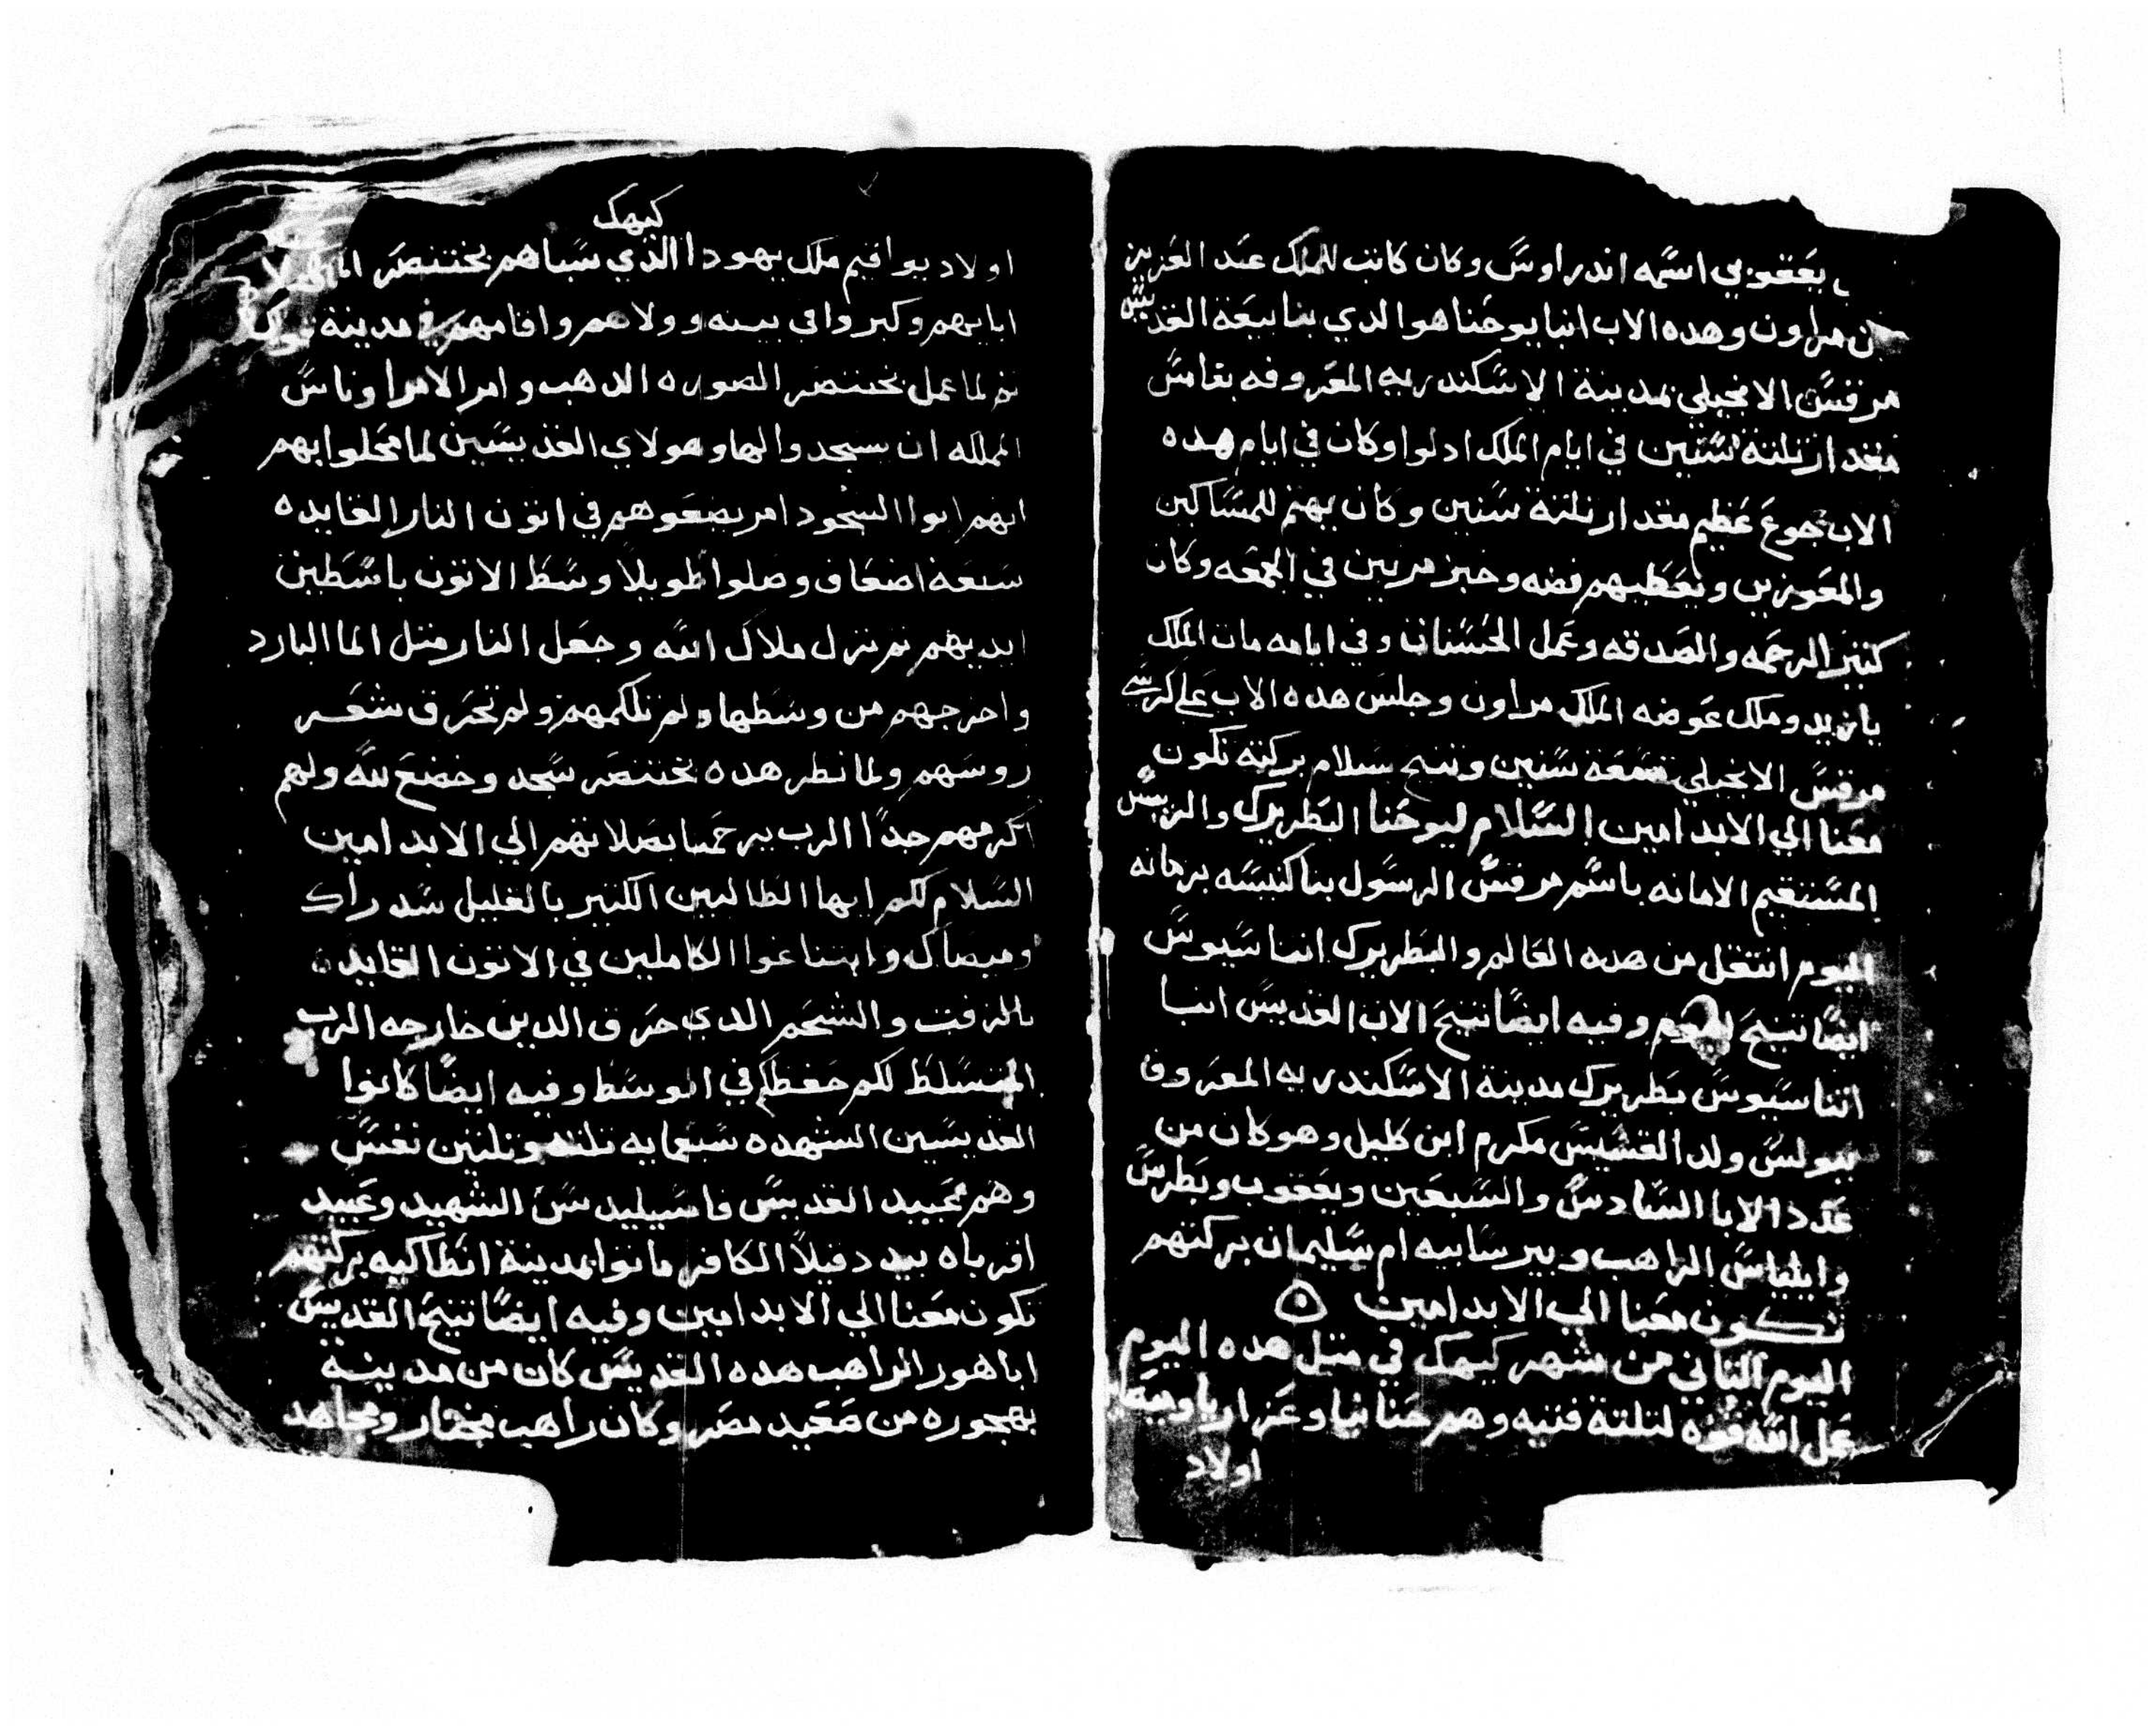 يعقوبي اسمه اندراوس وكان كاتب للملك عبد العزيز
بن مراون وهده الاب انبا يوحنا هو الدي بنا بيعة القديس
مرقس الانجيلي بمدينة الاسكندريه المعروفه بقامس
مقدار تلتة سنين في ايام الملك ادلوا وكان في ايام هده
الاب جوع عظيم مقدار تلتة سنين وكان يهتم للمساكين
والمعوزين ويعطيهم فضه وخبز مرتين في الجمعه وكان
كتير الرحمه والصدقه وعمل الحسنات وفي ايامه مات الملك
يازيد وملك عوضه الملك مراون وجلس هده الاب على كرسي
مرقس الانجيلي تسعة سنين وتنيح سلام بركته تكون
معنا الي الابد امين السلام ليوحنا البطريرك والريس
المستقيم الامانه باسم مرقس الرسول بنا كنيسه برهانه
اليوم انتقل من هده العالم والبطريرك اتناسيوس
ايضا تنيح اليوم وفيه ايضا تنيح الاب القديس انبا
اتناسيوس بطريرك مدينة الاسكندريه المعروف
ببولس ولد القسيس مكرم ابن كليل وهو كان من
عدد الابا السادس والسبعين ويعقوب وبطرس
وايلياس الراهب وبيرسابيه ام سليمان بركتهم
تكون معنا الي الابد امين
اليوم التاني من شهر كيهك في متل هده اليوم
عمل الله قوه لتلتة فتيه وهم حنانيا وعزاريا وميصايل
اولاد
كيهك
اولاد يواقيم ملك يهودا الذي سباهم بختنصر
ابايهم وكبروا في بيته وولاهم واقامهم في مدينة
تم لما عمل بختنصر الصوره الدهب وامر الامرا وناس
المملكه ان يسجدوا لها وهولاي القديسين لما محلوا بهم
انهم ابوا السجود امر يضعوهم في اتون النار القايده
سبعة اضعاف وصلوا طويلا وسط الاتون باسطين
ايديهم تم نزل ملاك الله وجعل النار متل الما البارد
واخرجهم من وسطها ولم تلكمهم ولم تحرق شعر
روسهم ولما نطر هده بختنصر سجد وخضع لله ولهم
اكرمهم جدا الرب يرحمنا بصلاتهم الي الابد امين
السلام لكم ايها الطالبين الكتير بالقليل سدراك
وميصاك وابتناغوا الكاملين في الاتون القايده
بالزفت والشحم الدي حرق الدين خارجه الرب
المتسلط لكم حفظكم في الوسط وفيه ايضا كانوا
القديسين الشهده سبعمايه تلته وتلتين نفس
وهم عبيد القديس فاسيليدس الشهيد وعبيد
اقرباه بيد دقيلا الكافر ماتوا بمدينة انطاكيه بركتهم
تكون معنا الي الابد امين وفيه ايضا تنيح القديس
ابا هور الراهب هده القديس كان من مدينة
بهجوره من صعيد مصر وكان راهب مختار ومجاهد